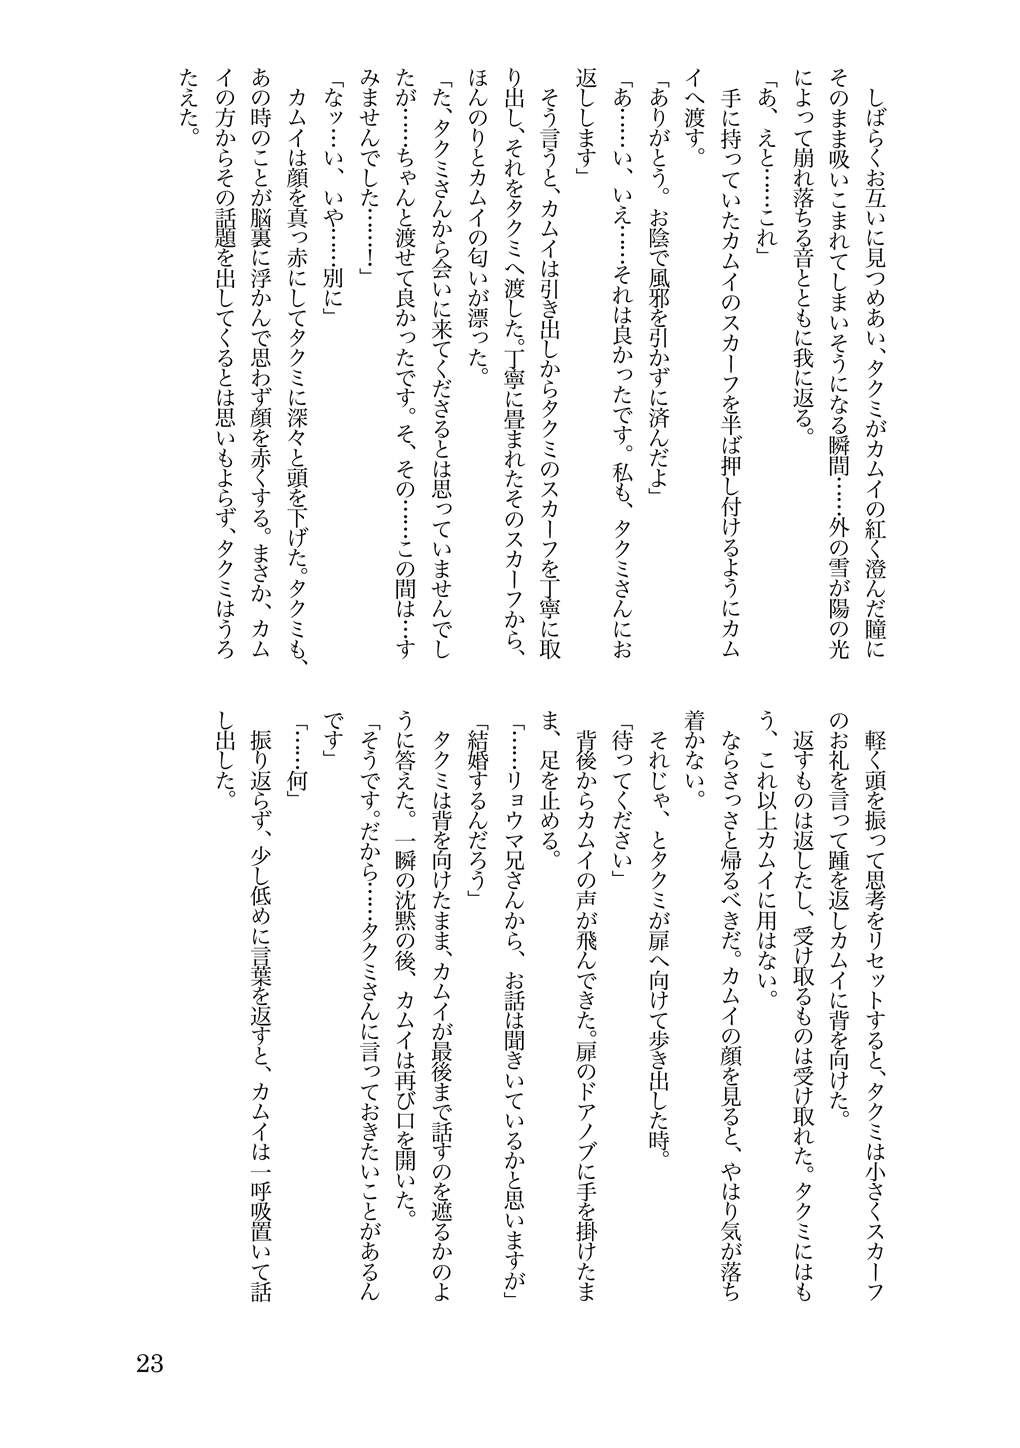 しばらくお互いに見つめあい、タクミがカムイの紅く澄んだ瞳に
そのまま吸いこまれてしまいそうになる瞬間……外の雪が陽の光
によって崩れ落ちる音とともに我に返る。
「あ、えと……これ」
手に持っていたカムイのスカーフを半ば押し付けるようにカム
イへ渡す。
「ありがとう。お陰で風邪を引かずに済んだよ」
「あ……い、いえ……それは良かったです。私も、タクミさんにお
返しします」
そう言うと、カムイは引き出しからタクミのスカーフを丁寧に取
り出し、それをタクミへ渡した。丁寧に畳まれたそのスカーフから、
ほんのりとカムイの匂いが漂った。
「た、タクミさんから会いに来てくださるとは思っていませんでし
たが……ちゃんと渡せて良かったです。そ、その……この間は…す
みませんでした……！」
「なッ…い、いや……別に」
カムイは顔を真っ赤にしてタクミに深々と頭を下げた。タクミも、
あの時のことが脳裏に浮かんで思わず顔を赤くする。まさか、カム
イの方からその話題を出してくるとは思いもよらず、タクミはうろ
たえた。
軽く頭を振って思考をリセットすると、タクミは小さくスカーフ
のお礼を言って踵を返しカムイに背を向けた。
返すものは返したし、受け取るものは受け取れた。タクミにはも
う、これ以上カムイに用はない。
ならさっさと帰るべきだ。カムイの顔を見ると、やはり気が落ち
着かない。
それじゃ、とタクミが扉へ向けて歩き出した時。
「待ってください」
背後からカムイの声が飛んできた。扉のドアノブに手を掛けたま
ま、足を止める。
「……リョウマ兄さんから、お話は聞きいているかと思いますが」
「結婚するんだろう」
タクミは背を向けたまま、カムイが最後まで話すのを遮るかのよ
うに答えた。一瞬の沈黙の後、カムイは再び口を開いた。
「そうです。だから……タクミさんに言っておきたいことがあるん
です」
「……何」
振り返らず、少し低めに言葉を返すと、カムイは一呼吸置いて話
し出した。
23